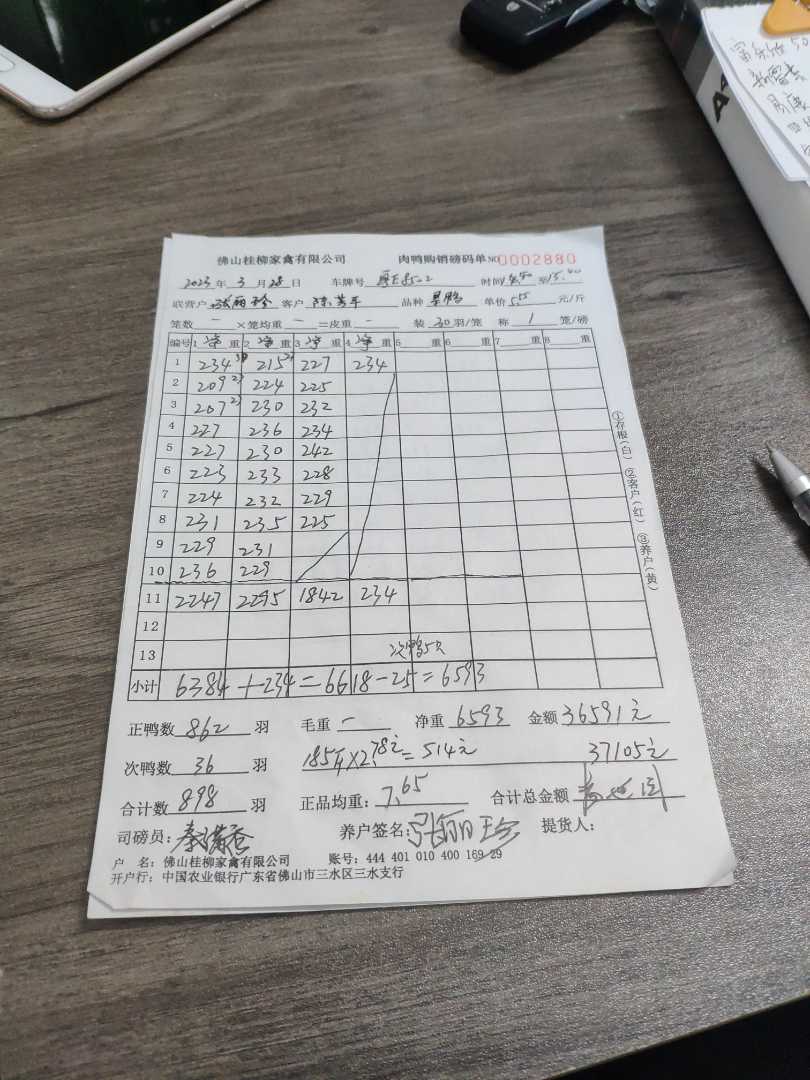 佛山桂柳家禽有限公司 肉鸭购销磅码单 NO 0002880
2023年 3月28日 车牌号 时间 至15.40
联营户 张丽珍 客户 品种 单价 5.55 元/斤
笼数 一 ×笼均重 一 =皮重 一 装 30 羽/笼 称 1 笼/磅
编号 1 净重 2 净重 3 净重 4 净重 5 重 6 重 7 重 8 重
1 234 215 227 234
2 209 224 225
3 207 230 232
4 227 236 234
5 227 230 242
6 223 233 228
7 224 232 229
8 231 235 225
9 229 231
10 236 229
11 2247 2295 1842 234
12
13 次鸭5只
小计 6384+234=6618-25=6593
正鸭数 862 羽 毛重 一 净重 6593 金额 36591元
次鸭数 36 羽 185斤×2.78元=514元 37105元
合计数 898 羽 正品均重: 7.65 合计总金额
司磅员: 养户签名: 张丽珍 提货人:
户 名: 佛山桂柳家禽有限公司 账号: 444 401 010 400 169 29
开户行: 中国农业银行广东省佛山市三水区三水支行
①存根(白) ②客户(红) ③养户(黄)